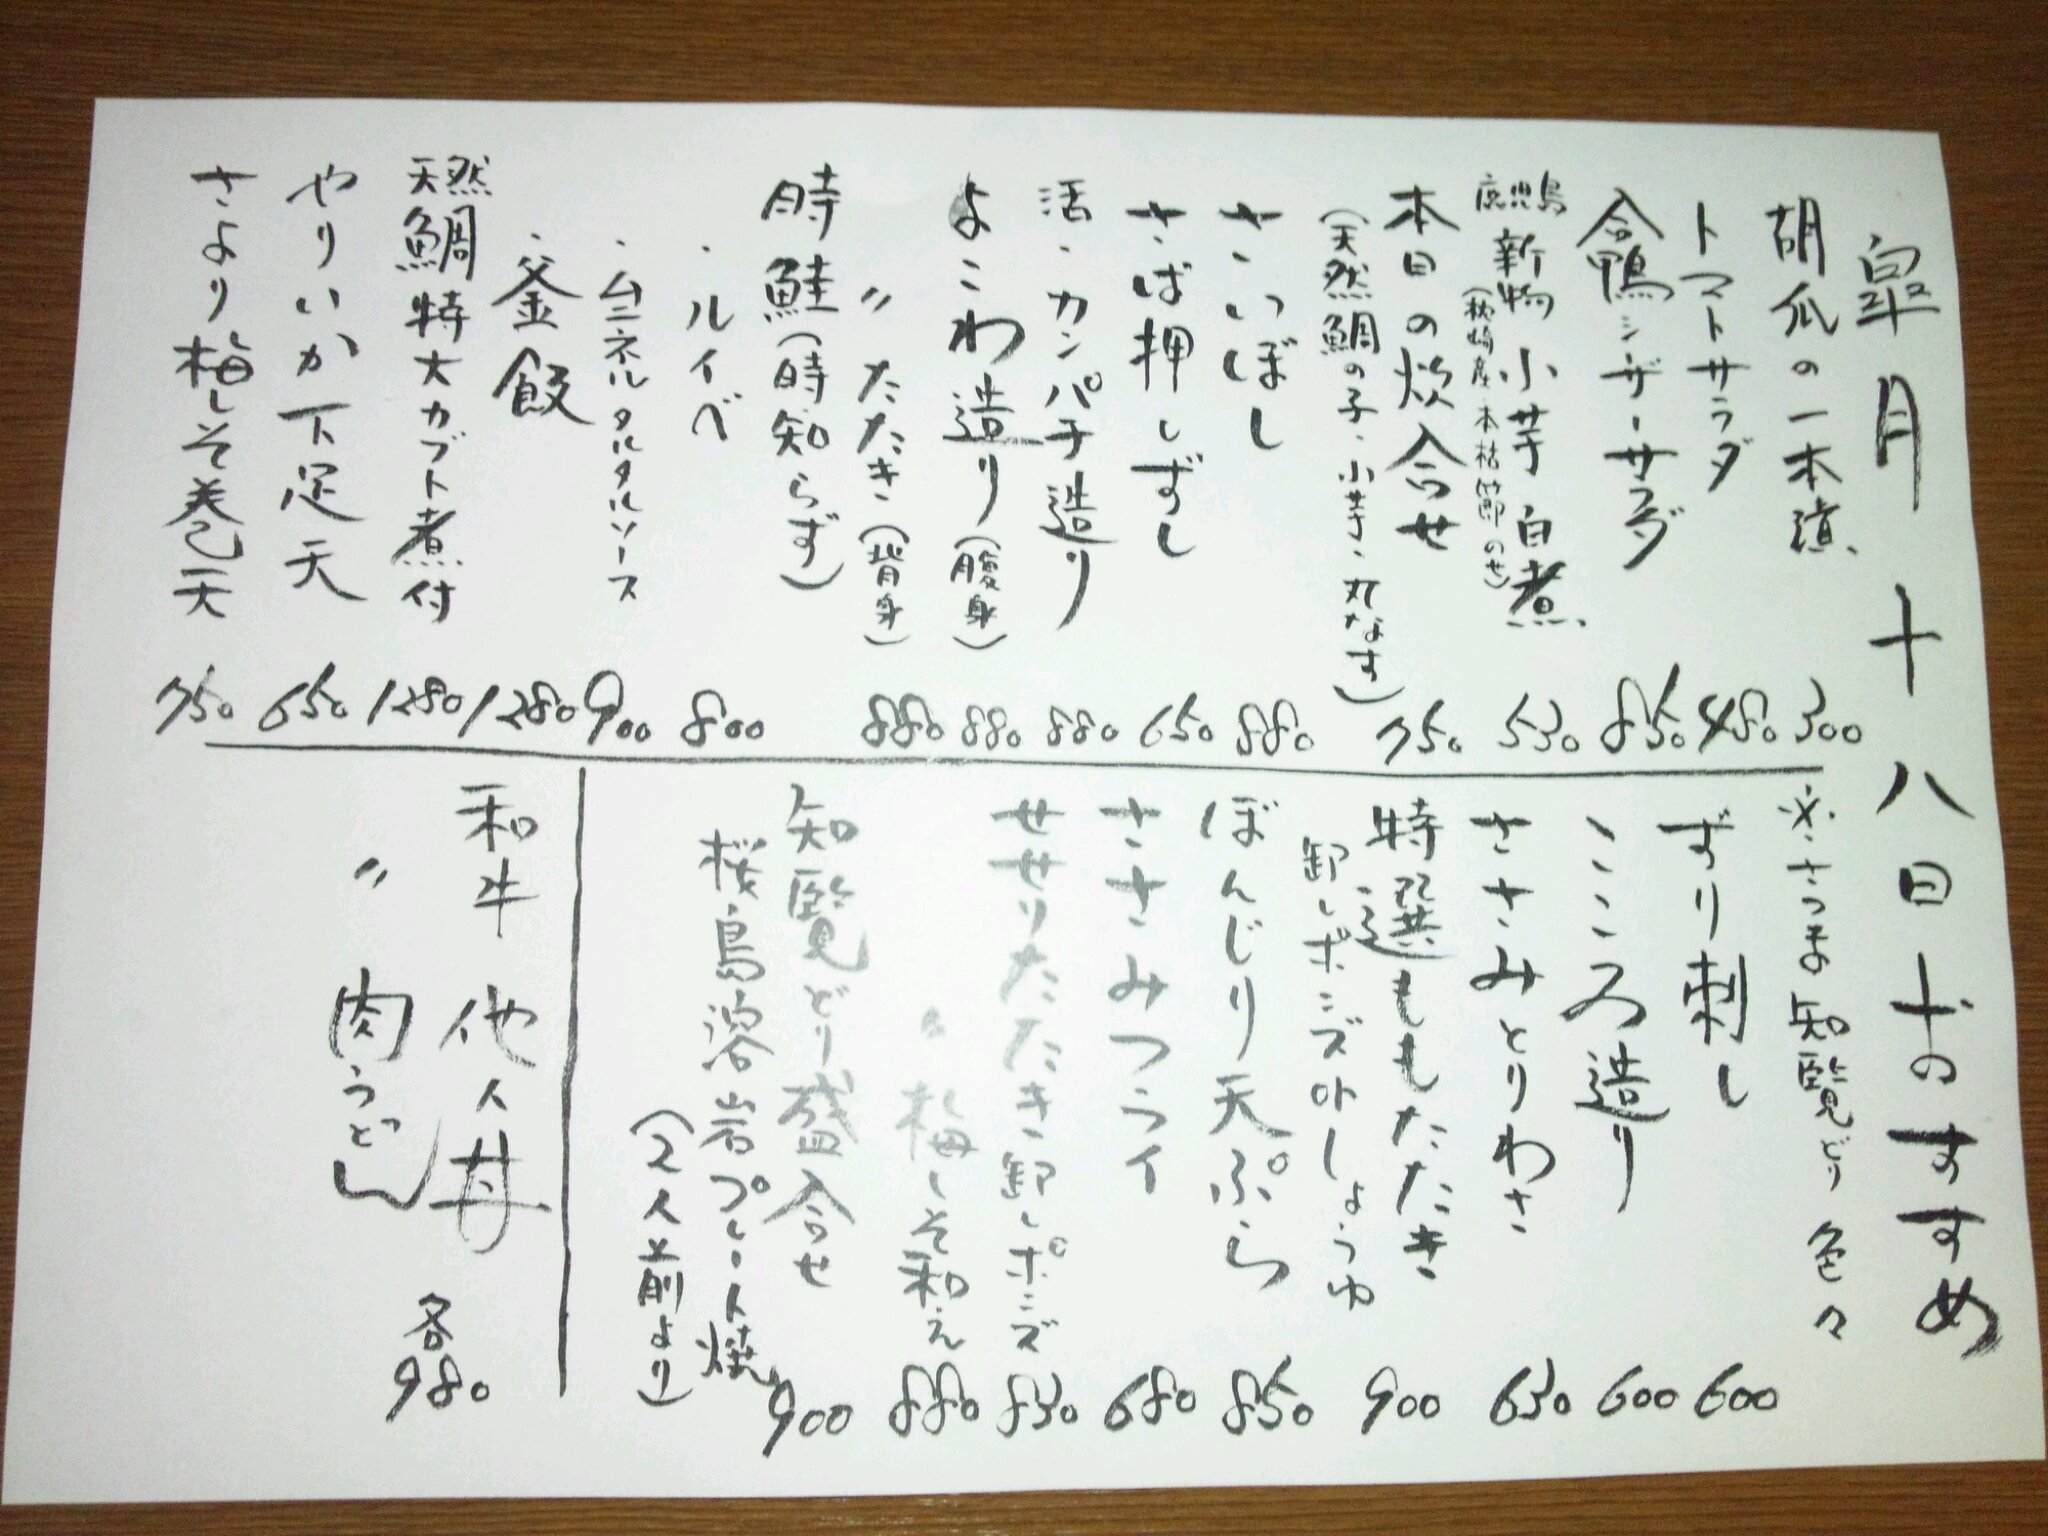 皐月十八日おすすめ
胡瓜の一本漬 300
トマトサラダ 480
合鴨シーザーサラダ 850
鹿児島 新物 小芋白煮 530
(枕崎産・本枯節のせ)
本日の炊合せ 750
(天然鯛の子・小芋・丸なす)
さいぼし 880
さば押しずし 650
活・カンパチ造り 880
よこわ造り(腹身) 880
〃 たたき(背身) 880
時鮭(時知らず)
・ルイベ 800
・ムニエルタルタルソース 900
・釜飯 1280
天然鯛特大カブト煮付 1280
やりいか下足天 650
さより梅しそ巻天 750
※さつま知覧どり色々
ずり刺し 600
こころ造り 600
ささみとりわさ 630
特選ももたたき 900
卸しポンズorしょうゆ
ぼんじり天ぷら 850
ささみつライ 680
せせりたたき卸しポンズ 830
〃 梅しそ和え 880
知覧どり盛合せ 900
桜島溶岩プレート焼
(2人前より)
和牛 他人丼
〃 肉うどん
各980